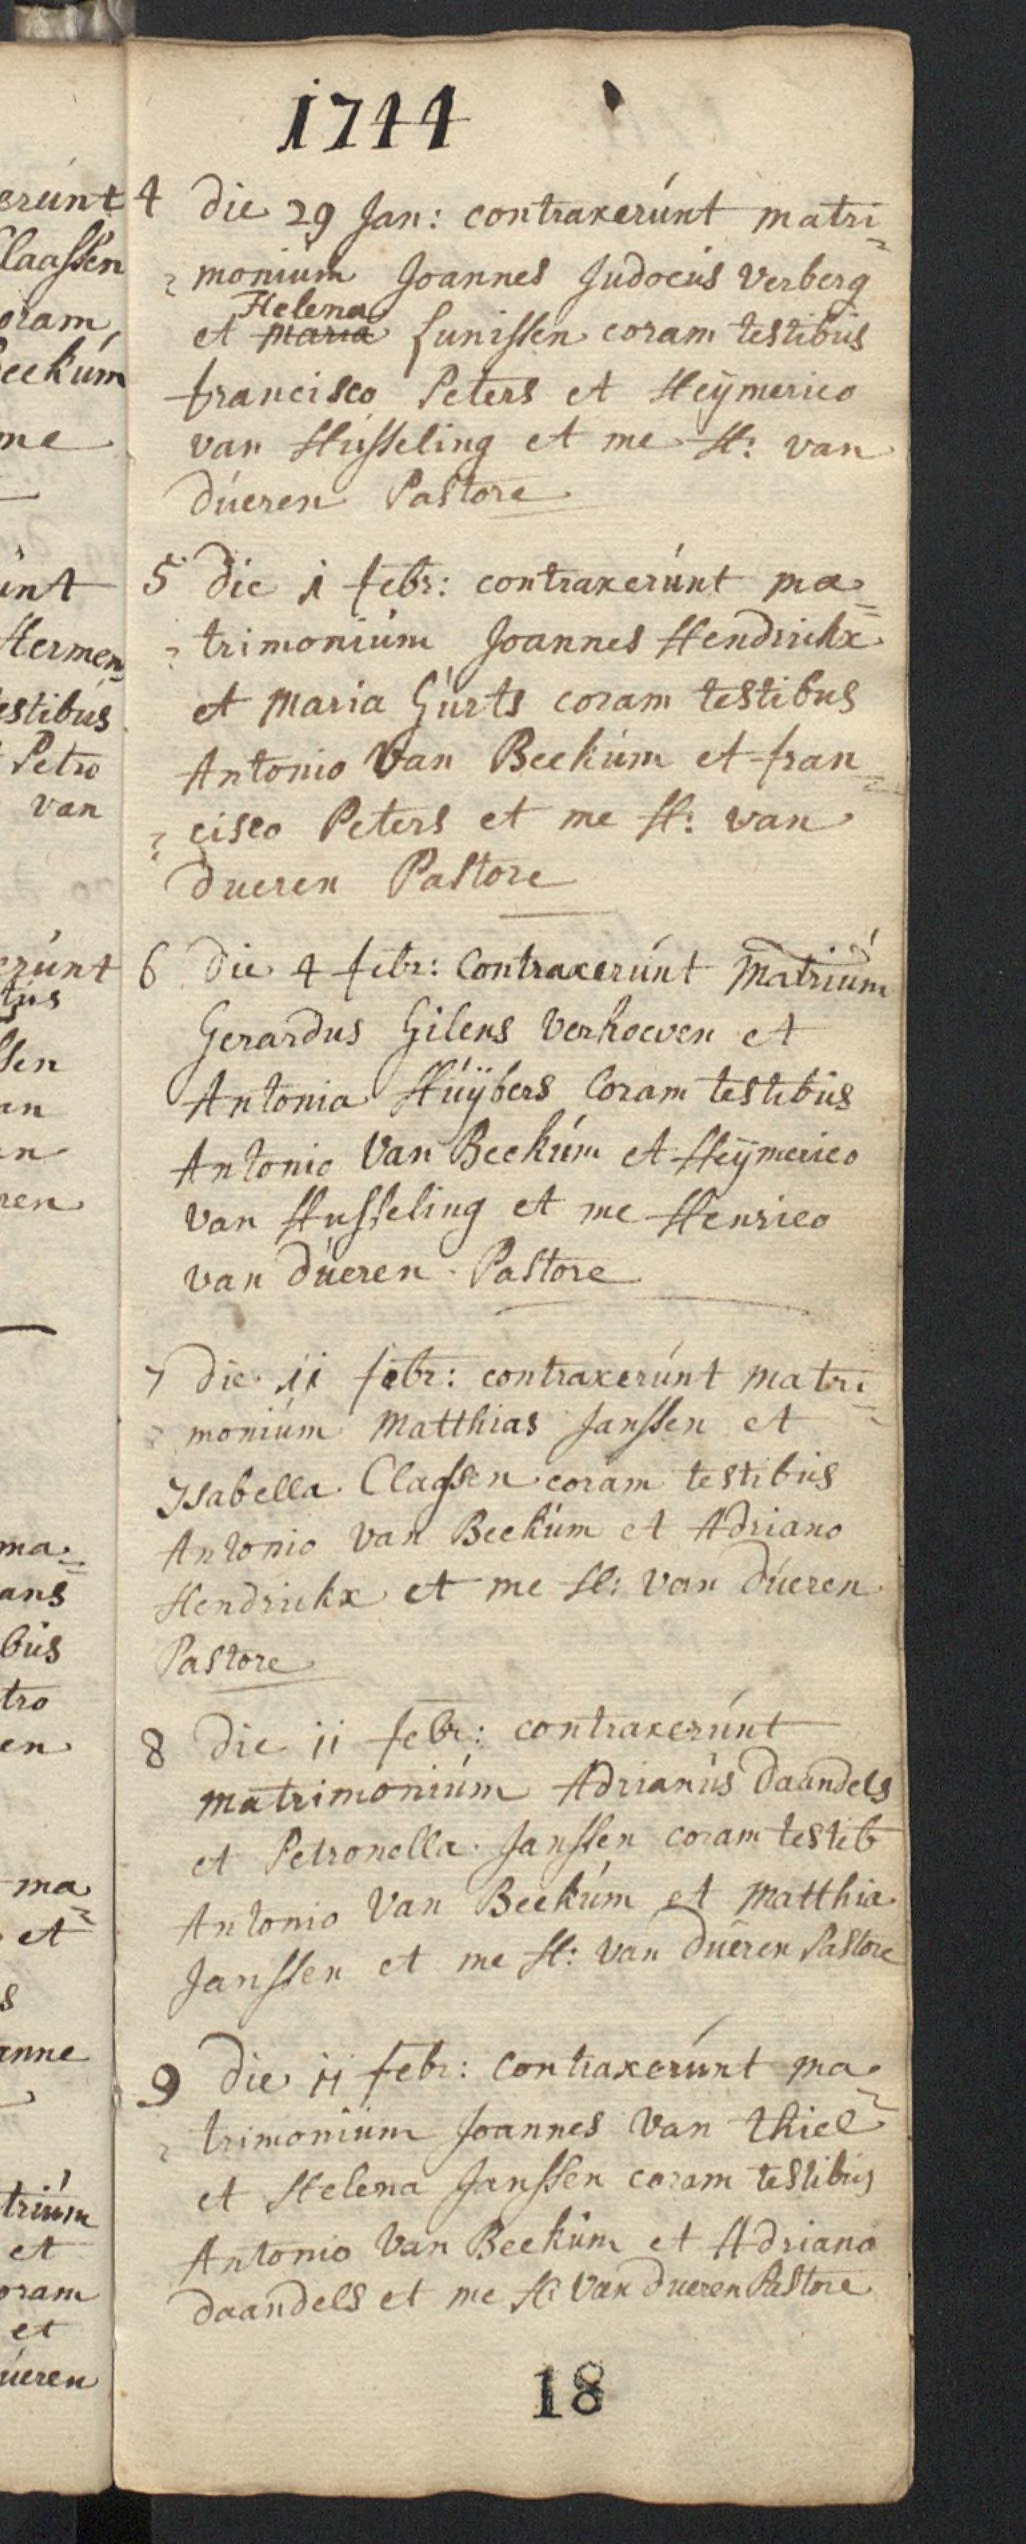 1744
4 die 29 Jan: contraxerúnt matri=
=moniúm Joannes Judocús Verberg
Helena
et maria Lunissen coram testibús
francisco Peters et Heÿmerico
van Hússeling et me H: van
dúeren Pastore
5 die 1 febr: contraxerúnt ma=
=trimoniúm Joannes Hendrickx
et maria Gúrts coram testibus
Antonio Van Beekúm et fran=
=cisco Peters et me H: van
dueren Pastore
6 die 4 febr: Contraxerúnt Matriúm
Gerardus Gilens Verhoeven et
Antonia Húÿbers Coram testibús
Antonio Van Beekúm et Heÿmerico
van Husseling et me Henrico
van dúeren Pastore
7 die 11 febr: contraxerúnt matri=
=moniúm Matthias Janssen et
Isabella Claassen coram testibús
Antonio Van Beekúm et Adriano
Hendrickx et me H: van dúeren
Pastore
8 die 11 febr: contraxerúnt
matrimoniúm Adrianús daandels
et Petronella Janssen coram testib
Antonio Van Beekúm et Matthia
Janssen et me H: van dúeren Pastore
9 die 11 febr: Contraxerúnt ma=
=trimoniúm Joannes Van thiel
et Helena Janssen coram testibus
Antonio Van Beekúm et Adriano
daandels et me H: Van dueren Pastore
18
erúnt
Claassen
oram
eekúm
me
únt
Hermen=
estibús
Petro
van
erúnt
tús
ssen
an
en
ren
ma=
ans
bús
tro
en
ma=
et
s
anne
triúm
et
oram
et
úeren